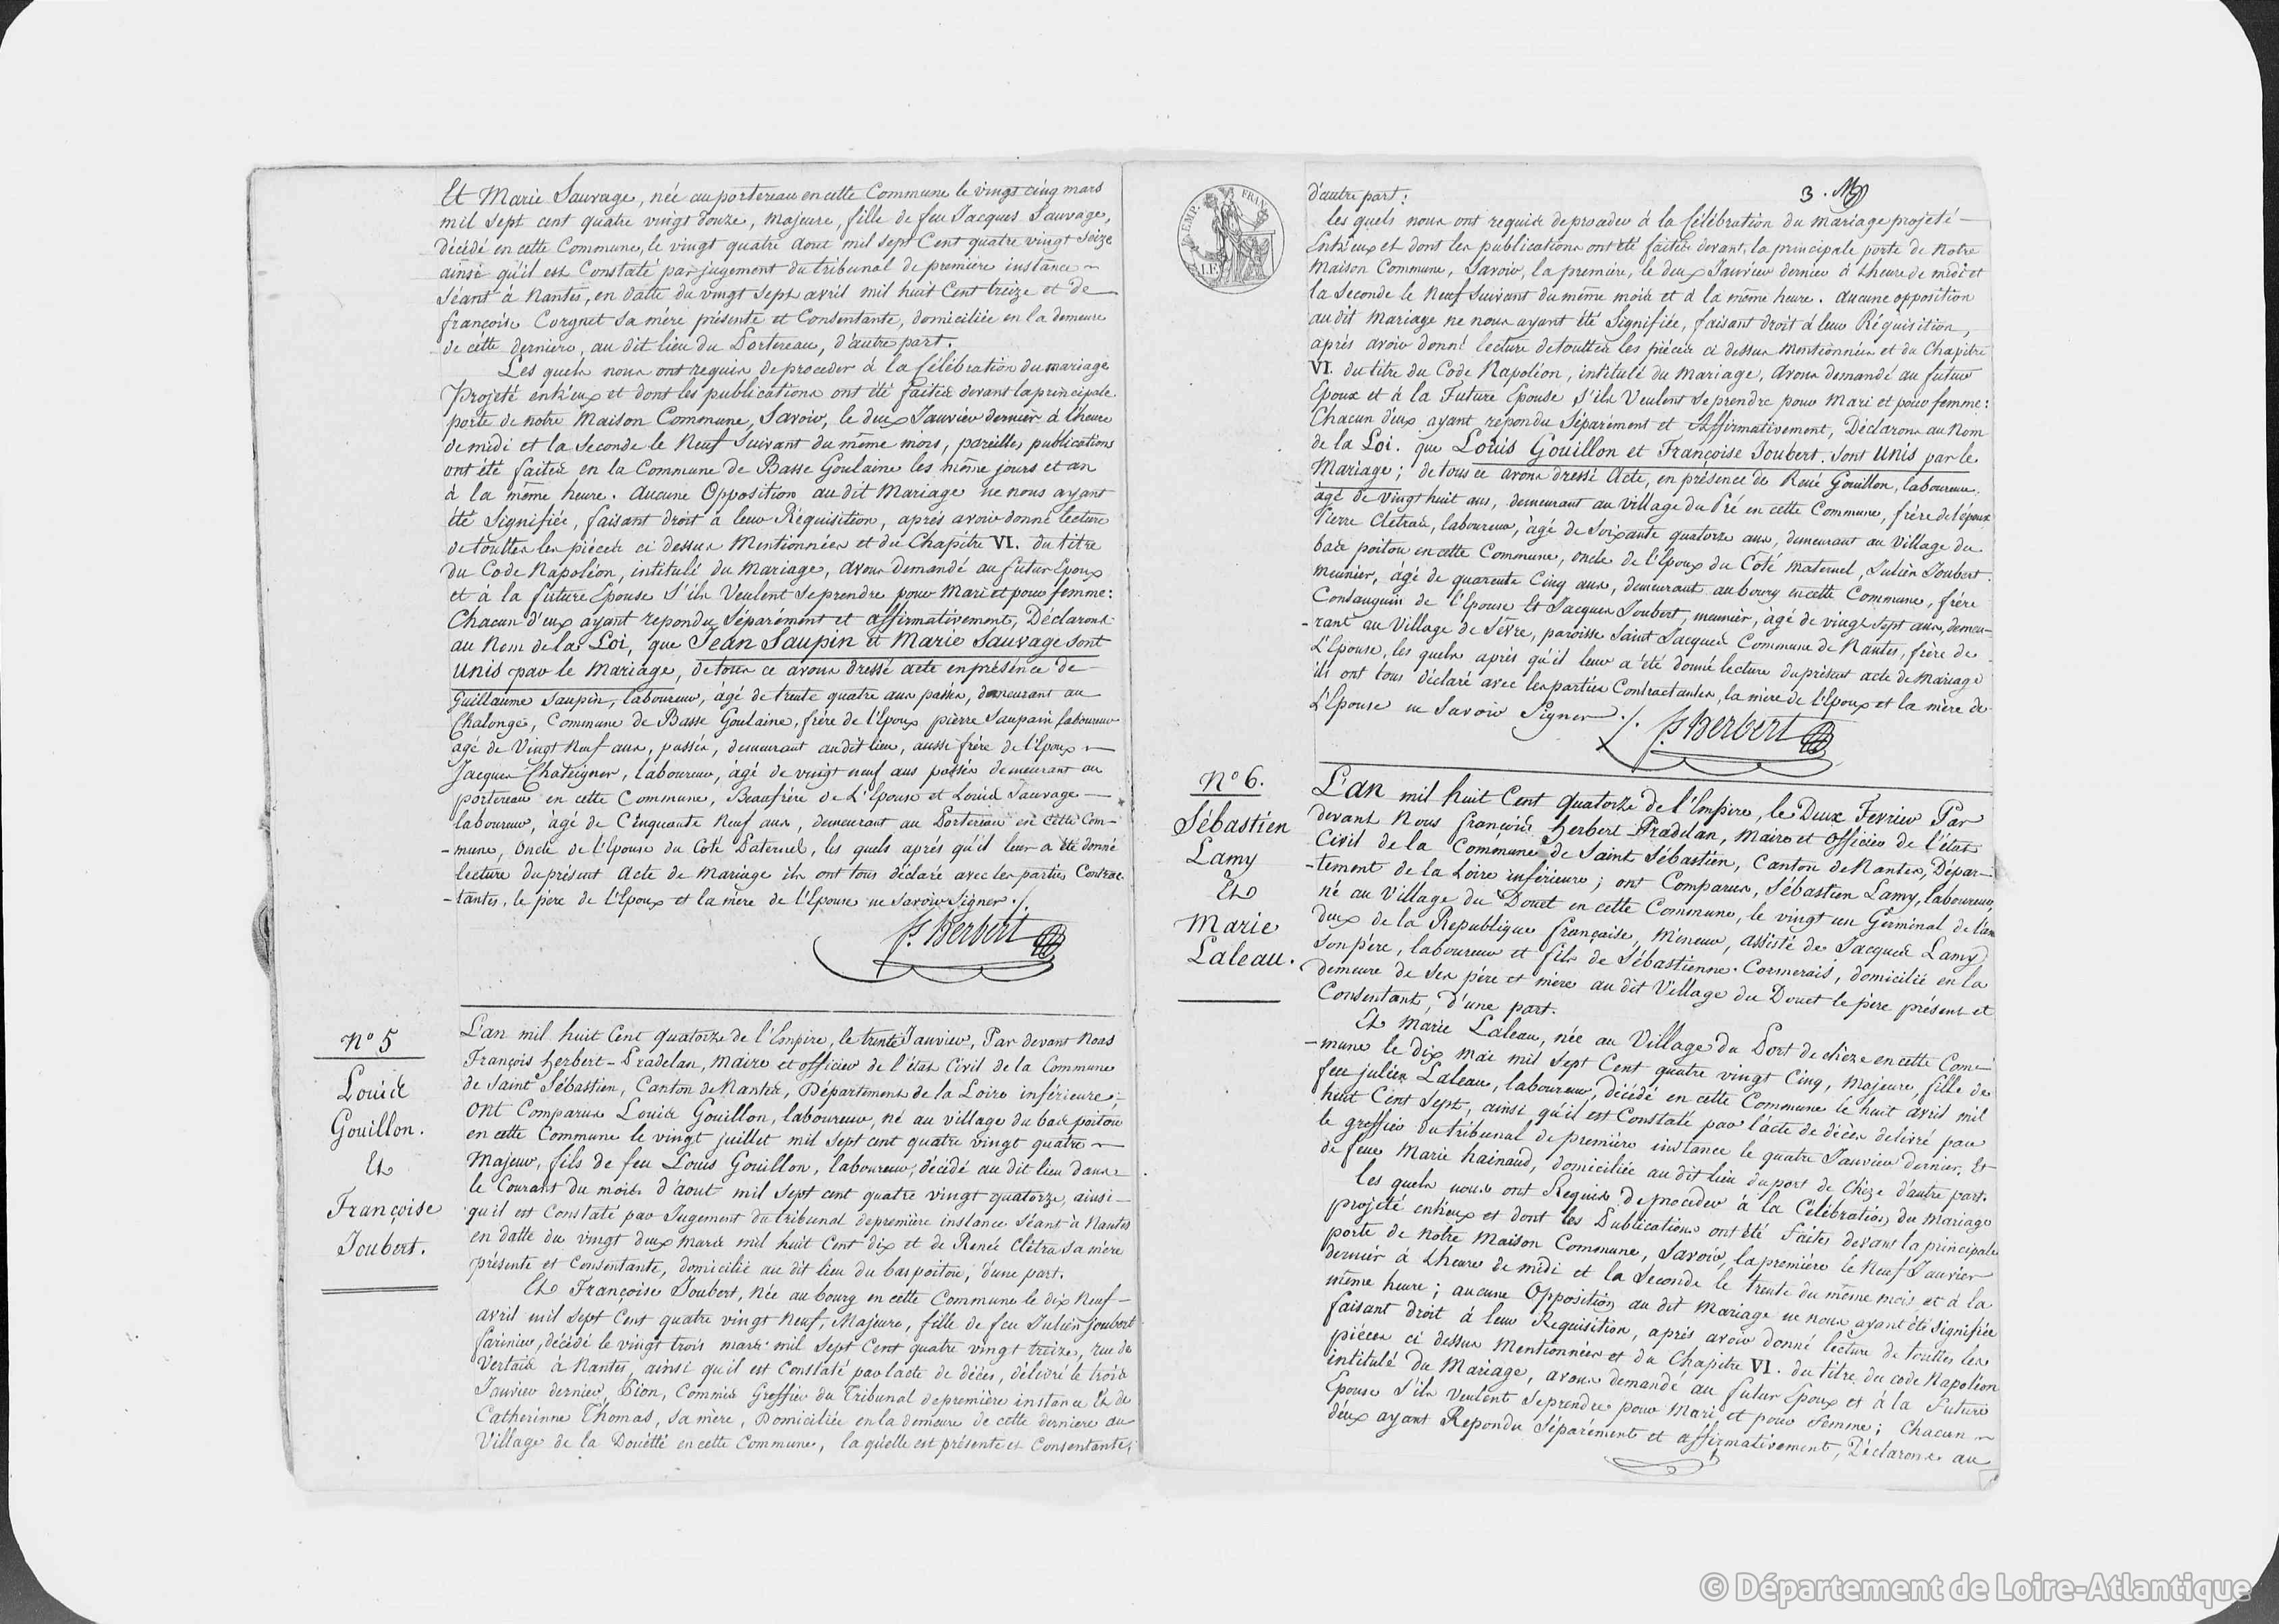 Et Marie Sauvage, née au portereau en cette Commune le vingt cinq mars
mil sept cent quatre vingt douze, majeure, fille de feu Jacques Sauvage,
décédé en cette Commune, le vingt quatre aout mil sept Cent quatre vingt seize
ainsi qu'il est Constaté par jugement du tribunal de première instance
Séant à Nantes, en datte du vingt sept avril mil huit Cent treize et de
françoise Corgnet sa mère présente et Consentante, domiciliée en la demeure
de cette derniere, au dit lieu du Portereau, d'autre part.
Les quels nous ont requis de proceder à la Célébration du mariage
Projeté entr'eux et dont les publications ont été faites devant la principale
porte de notre Maison Commune, Savoir, le deux Janvier dernier à l'heure
de midi et la seconde le Neuf Suivant du même mois, pareilles publications
ont été faites en la Commune de Basse Goulaine les même jours et an
à la même heure. Aucune Opposition au dit Mariage ne nous ayant
été Signifiée, faisant droit à leur Réquisition, après avoir donné lecture
de touttes les pièces ci dessus Mentionnées et du Chapitre VI. du titre
du Code Napoléon, intitulé du Mariage, avons demandé au futur Epoux
et à la future Epouse s'ils Veulent se prendre pour Mari et pour femme:
Chacun d'eux ayant repondu Séparément et affirmativement, Déclarons
au Nom de la Loi, que Jean Saupin et Marie Sauvage sont
unis par le Mariage, de tous ce avons dressé acte en présence de
Guillaume Saupin, laboureur, âgé de trente quatre ans passés, demeurant au
Chalonge, Commune de Basse Goulaine, frère de l'Epoux, pièrre Saupain laboureur
agé de Vingt Neuf ans, passés, demeurant au dit lieu, aussi frère de l'Epoux
Jacques Chateigner, laboureur, âgé de vingt neuf ans passés demeurant au
portereau en cette Commune, Beaufrère de L'Epouse et Louis Sauvage
laboureur, agé de Cinquante Neuf ans, demeurant au Portereau en cette Com-
-mune, Oncle de l'Epouse du Coté Paternel, les quels après qu'il leur a été donné
lecture du présent Acte de Mariage ils ont tous déclaré avec les parties Contrac
-tantes, le père de l'Epoux et la mère de l'Epouse ne Savoir Signer./.
f. Herbert
N° 5
Louis
Gouillon.
Et
Françoise
Joubert.
L'an mil huit Cent quatorze de l'Empire, le trente Janvier, Par devant Nous
François Herbert-Pradelan, Maire et officier de l'état Civil de la Commune
de Saint Sébastien, Canton de Nantes, Département de la Loire inférieure;
Ont Comparus Louis Gouillon, laboureur, né au village du bas poitou
en cette Commune le vingt juillet mil sept cent quatre vingt quatre
Majeur, fils de feu Louis Gouillon, laboureur, décédé au dit lieu dans
le Courant du mois d'aout mil sept cent quatre vingt quatorze, ainsi
qu'il est Constaté par Jugement du tribunal de première instance Séant à Nantes
en datte du vingt deux mars mil huit Cent dix et de Renée Clétras sa mère
présente et Consentante, domicilié au dit lieu du bas poitou, d'une part.
Et Françoise Joubert, Née au bourg en cette Commune le dix Neuf
avril mil sept Cent quatre vingt Neuf, Majeure, fille de feu Julien Joubert
farinier, décédé le vingt trois mars mil sept Cent quatre vingt treize, rue de
Vertais à Nantes, ainsi qu'il est Constaté par l'acte de décès, délivré le trois
Janvier dernier, Commis Greffier du Tribunal de première instance Et de
Catherinne Thomas, sa mère, Domiciliée en la demeure de cette derniere au
Village de la Douëtté en cette Commune, la quelle est présente et Consentante,
3.
d'autre part:
les quels nous ont requis de proceder à la Célébration du mariage projeté
Entr'eux et dont les publications ont été faites devant la principale porte de Notre
Maison Commune, Savoir, la première, le deux Janvier dernier à l'heure de midi et
la Seconde le Neuf Suivant du même mois et à la même heure. Aucune opposition
au dit Mariage ne nous ayant été Signifiée, faisant droit à leur Réquisition,
après avoir donné lecture de touttes les pièces ci dessus Mentionnées et du Chapitre
VI. du titre du Code Napoléon, intitulé du Mariage, avons demandé au futur
Epoux et à la Future Epouse s'ils Veulent se prendre pour Mari et pour femme:
Chacun d'eux ayant repondu Séparément et Affirmativement, Déclarons au Nom
de la Loi. que Louis Gouillon et Françoise Joubert. sont unis par le
Mariage; de tous ce avons dressé Acte, en présence de René Gouillon, laboureur,
âgé de vingt huit ans, demeurant au village du Pré en cette Commune, frère de l'époux
Pierre Clétras, laboureur, âgé de soixante quatorze ans, demeurant au Village du
bas poitou en cette Commune, oncle de l'Epoux du Coté Maternel, Julien Joubert
meunier, âgé de quarente Cinq ans, demeurant au bourg en cette Commune, frère
Consanguin de l'Epouse Et Jacques Joubert, meunier, âgé de vingt sept ans, demeu-
-rant au Village de Sèvre, paroisse Saint Jacques Commune de Nantes, frère de
L'Epouse, les quels après qu'il leur a été donné lecture du présent acte de Mariage
ils ont tous déclaré avec les parties Contractantes, la mère de l'Epoux et la mère de
L'Epouse ne Savoir Signer./.
f. Herbert
N° 6.
Sébastien
Lamy
Et
Marie
Laleau.
L'an mil huit Cent quatorze de l'Empire, le Deux Fevrier Par
devant Nous françois Herbert-Pradelan, Maire et Officier de l'état
Civil de la Commune de Saint Sébastien, Canton de Nantes, Dépar-
-tement de la Loire inférieure; ont Comparus, Sébastien Lamy, laboureur,
né au Village du Douet en cette Commune, le vingt un Germinal de l'an
deux de la Republique française, Mineur, assisté de Jacques Lamy
son père, laboureur et fils de Sébastienne Cormerais, domicilié en la
demeure de ses père et mère au dit Village du Douet le père présent et
Consentant, d'une part.
Et Marie Laleau, née au Village du Port de chèze en cette Com-
-mune le dix mai mil sept Cent quatre vingt Cinq, Majeure, fille de
feu julien Laleau, laboureur, décédé en cette Commune le huit avril mil
huit Cent Sept, ainsi qu'il est Constaté par l'acte de décès delivré par
le greffier du tribunal de première instance le quatre Janvier dernier, Et
de feue Marie hainaud, domiciliée au dit lieu du port de Chèze d'autre part.
les quels nous ont Requis de proceder à la Célébration du Mariage
projeté entr'eux et dont les Publications ont été faites devant la principale
porte de notre Maison Commune, Savoir, la première le Neuf Janvier
dernier à L'heure de midi et la Seconde le trente du même mois et à la
même heure; aucune Opposition au dit Mariage ne nous ayant été signifiée
faisant droit à leur Requisition, après avoir donné lecture de touttes les
pièces ci dessus Mentionnées et du Chapitre VI. du titre du code Napoléon
intitulé du Mariage, avons demandé au futur Epoux et à la future
Epouse s'ils veulent se prendre pour Mari et pour Femme; Chacun
d'eux ayant Repondu Séparément et affirmativement, Déclarons au
© Département de Loire-Atlantique